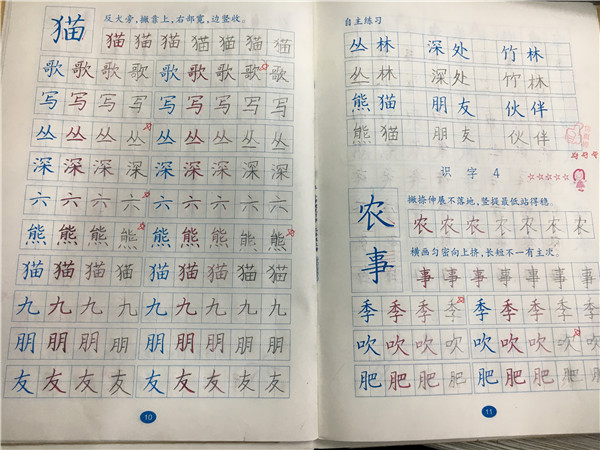 猫 反犬旁，撇靠上，右部宽，边竖收。
猫猫猫猫猫猫猫
歌歌歌歌歌歌歌歌歌
写写写写写写写写写
丛丛丛丛丛丛丛丛丛
深深深深深深深深深
六六六六六六六六六
熊熊熊熊熊熊熊熊熊
猫猫猫猫猫猫猫猫猫
九九九九九九九九九
朋朋朋朋朋朋朋朋朋
友友友友友友友友友
10
自主练习
丛林 深处 竹林
丛林 深处 竹林
熊猫 朋友 伙伴
熊猫 朋友 伙伴
识字 4
农 撇捺伸展不落地，竖提最低站得稳。
农农农农农农农
事 横画匀密向上挤，长短不一有主次。
事事事事事事事
季季季季季季季季季
吹吹吹吹吹吹吹吹吹
肥肥肥肥肥肥肥肥肥
11